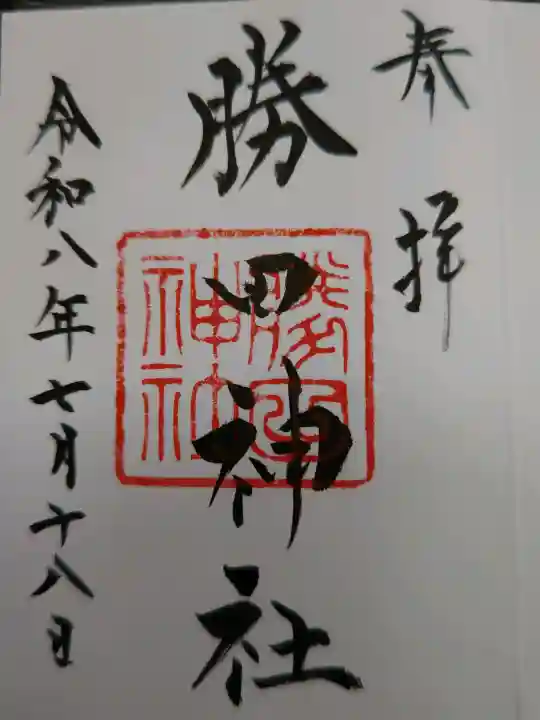 奉拝
勝田神社
勝田神社
令和八年七月十八日